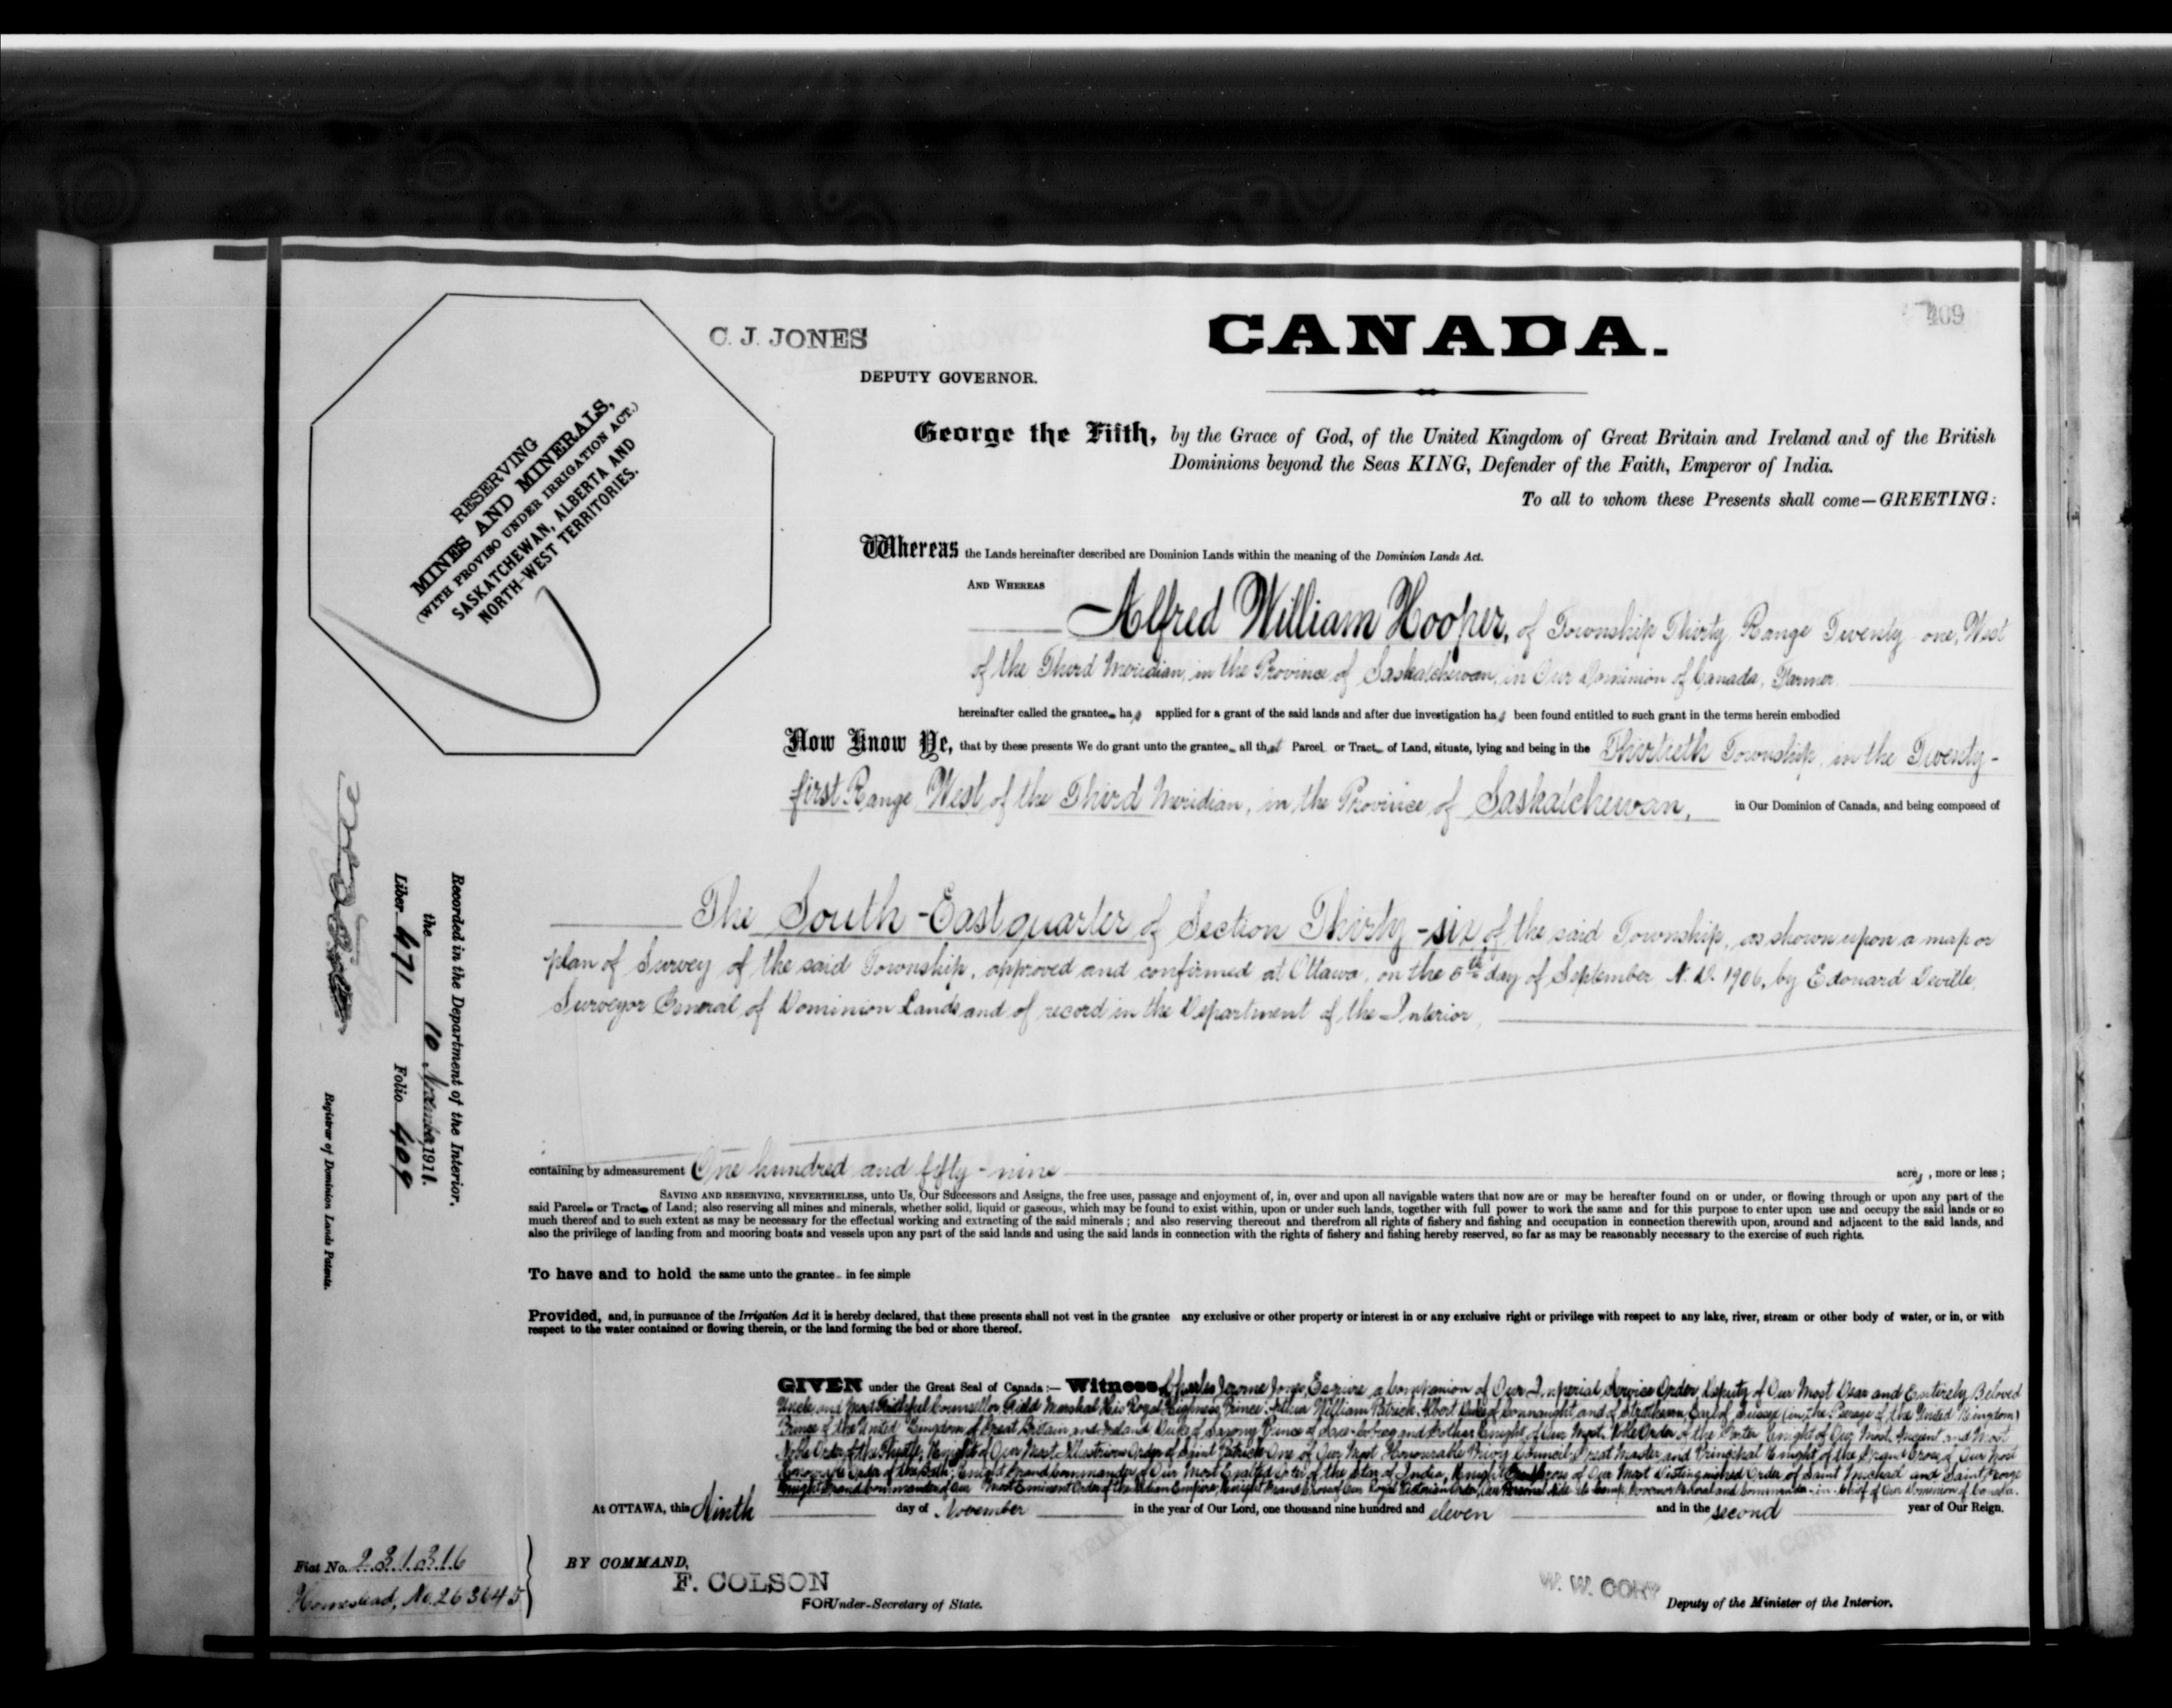 409
C. J. JONES
DEPUTY GOVERNOR.
CANADA.
RESERVING
MINES AND MINERALS,
(WITH PROVISO UNDER IRRIGATION ACT.)
SASKATCHEWAN, ALBERTA AND
NORTH-WEST TERRITORIES.
George the Fifth, by the Grace of God, of the United Kingdom of Great Britain and Ireland and of the British
Dominions beyond the Seas KING, Defender of the Faith, Emperor of India.
To all to whom these Presents shall come—GREETING:
Whereas the Lands hereinafter described are Dominion Lands within the meaning of the Dominion Lands Act.
AND WHEREAS
Alfred William Hooper, of Township Thirty Range Twenty one, West
of the Third Meridian, in the Province of Saskatchewan, in Our Dominion of Canada, Farmer
hereinafter called the grantee has applied for a grant of the said lands and after due investigation has been found entitled to such grant in the terms herein embodied
Now Know Ye, that by these presents We do grant unto the grantee all that Parcel or Tract of Land, situate, lying and being in the Thirtieth Township, in the Twenty-
first Range, West of the Third Meridian, in the Province of Saskatchewan, in Our Dominion of Canada, and being composed of
The South-East quarter of Section Thirty-six of the said Township, as shown upon a map or
plan of Survey of the said Township, approved and confirmed at Ottawa, on the 5th day of September A.D. 1906, by Edouard Deville,
Surveyor General of Dominion Lands and of record in the Department of the Interior,
containing by admeasurement One hundred and fifty-nine acres, more or less;
SAVING AND RESERVING, NEVERTHELESS, unto Us, Our Successors and Assigns, the free uses, passage and enjoyment of, in, over and upon all navigable waters that now are or may be hereafter found on or under, or flowing through or upon any part of the
said Parcel or Tract of Land; also reserving all mines and minerals, whether solid, liquid or gaseous, which may be found to exist within, upon or under such lands, together with full power to work the same and for this purpose to enter upon use and occupy the said lands or so
much thereof and to such extent as may be necessary for the effectual working and extracting of the said minerals; and also reserving thereout and therefrom all rights of fishery and fishing and occupation in connection therewith upon, around and adjacent to the said lands, and
also the privilege of landing from and mooring boats and vessels upon any part of the said lands and using the said lands in connection with the rights of fishery and fishing hereby reserved, so far as may be reasonably necessary to the exercise of such rights.
To have and to hold the same unto the grantee in fee simple
Provided, and, in pursuance of the Irrigation Act it is hereby declared, that these presents shall not vest in the grantee any exclusive or other property or interest in or any exclusive right or privilege with respect to any lake, river, stream or other body of water, or in, or with
respect to the water contained or flowing therein, or the land forming the bed or shore thereof.
GIVEN under the Great Seal of Canada:— Witness, Charles Jerome Jones, Esquire a Companion of Our Imperial Service Order, Deputy of Our Most Dear and Entirely Beloved
Uncle and Most Faithful Counsellor Field Marshal His Royal Highness Prince Arthur William Patrick Albert Duke of Connaught and of Strathearn, Earl of Sussex (in the Peerage of the United Kingdom)
Prince of the United Kingdom of Great Britain and Ireland, Duke of Saxony Prince of Saxe-Coburg and Gotha Knight of Our Most Noble Order of the Garter Knight of Our Most Ancient and Most
Noble Order of the Thistle, Knight of Our Most Illustrious Order of Saint Patrick One of Our Most Honourable Privy Council Great Master and Principal Knight of the Grand Cross of Our Most
Honourable Order of the Bath, Knight Grand Commander of Our Most Exalted Order of the Star of India, Knight Grand Cross of Our Most Distinguished Order of Saint Michael and Saint George
Knight Grand Commander of Our Most Eminent Order of the Indian Empire, Knight Grand Cross of Our Royal Victorian Order, Our Personal Aide de Camp, Governor General and Commander-in-Chief of Our Dominion of Canada.
At OTTAWA, this Ninth day of November in the year of Our Lord, one thousand nine hundred and eleven and in the second year of Our Reign.
BY COMMAND,
F. COLSON
FOR Under-Secretary of State.
W. W. CORY
Deputy of the Minister of the Interior.
Fiat No. 231316
Homestead, No. 263645
Recorded in the Department of the Interior,
the 10 November 1911.
Liber 471 Folio 409
Registrar of Dominion Lands Patents.